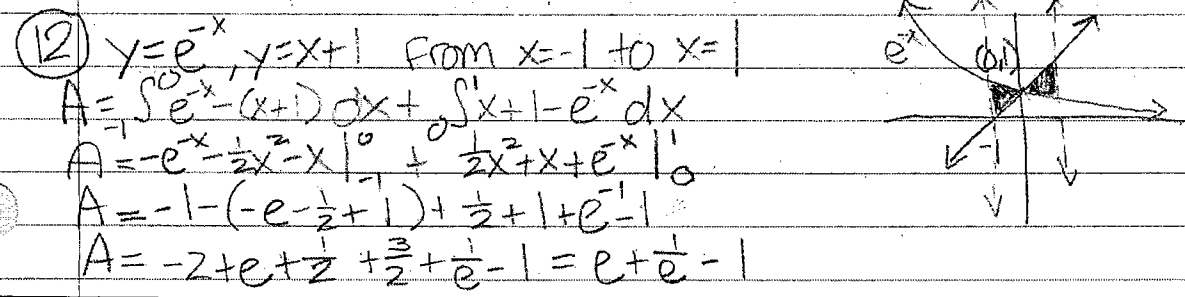 (12) y=e^-x, y=x+1 From x=-1 to x=1
A= ₋₁∫⁰ e^-x-(x+1) dx + ₀∫¹ x+1-e^-x dx
A=-e^-x-½x²-x|⁰₋₁ + ½x²+x+e^-x|¹₀
A=-1-(-e-½+1)+½+1+e^-1-1
A= -2+e+½+3/2+1/e-1=e+1/e-1
e^-x
(0,1)
-1